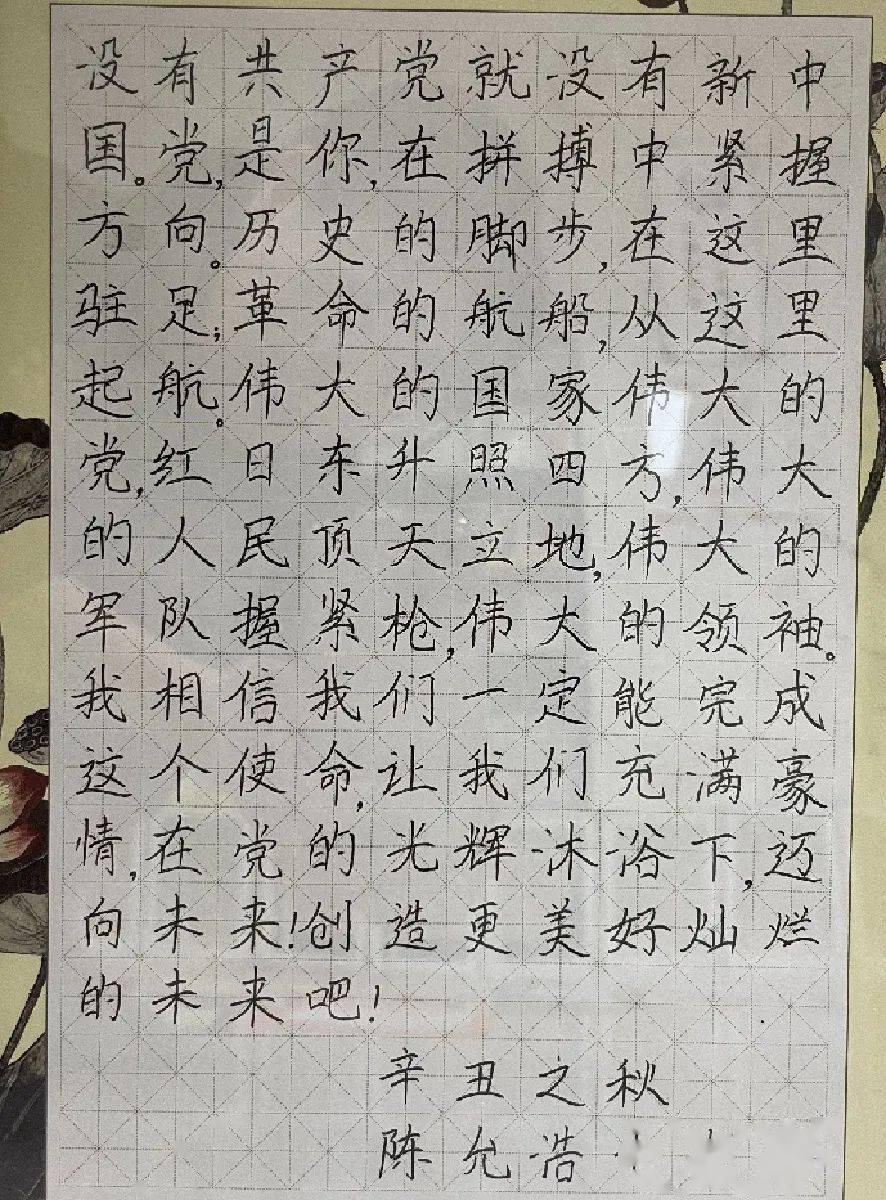 没有共产党就没有新中
国。党,是你,在拼搏中紧握
方向。历史的脚步,在这里
驻足;革命的航船,从这里
起航。伟大的国家伟大的
党,红日东升照四方,伟大
的人民顶天立地,伟大的
军队握紧枪,伟大的领袖。
我相信我们一定能完成
这个使命,让我们充满豪
情,在党的光辉沐浴下,迈
向未来!创造更美好灿烂
的未来吧!
辛丑之秋
陈允浩